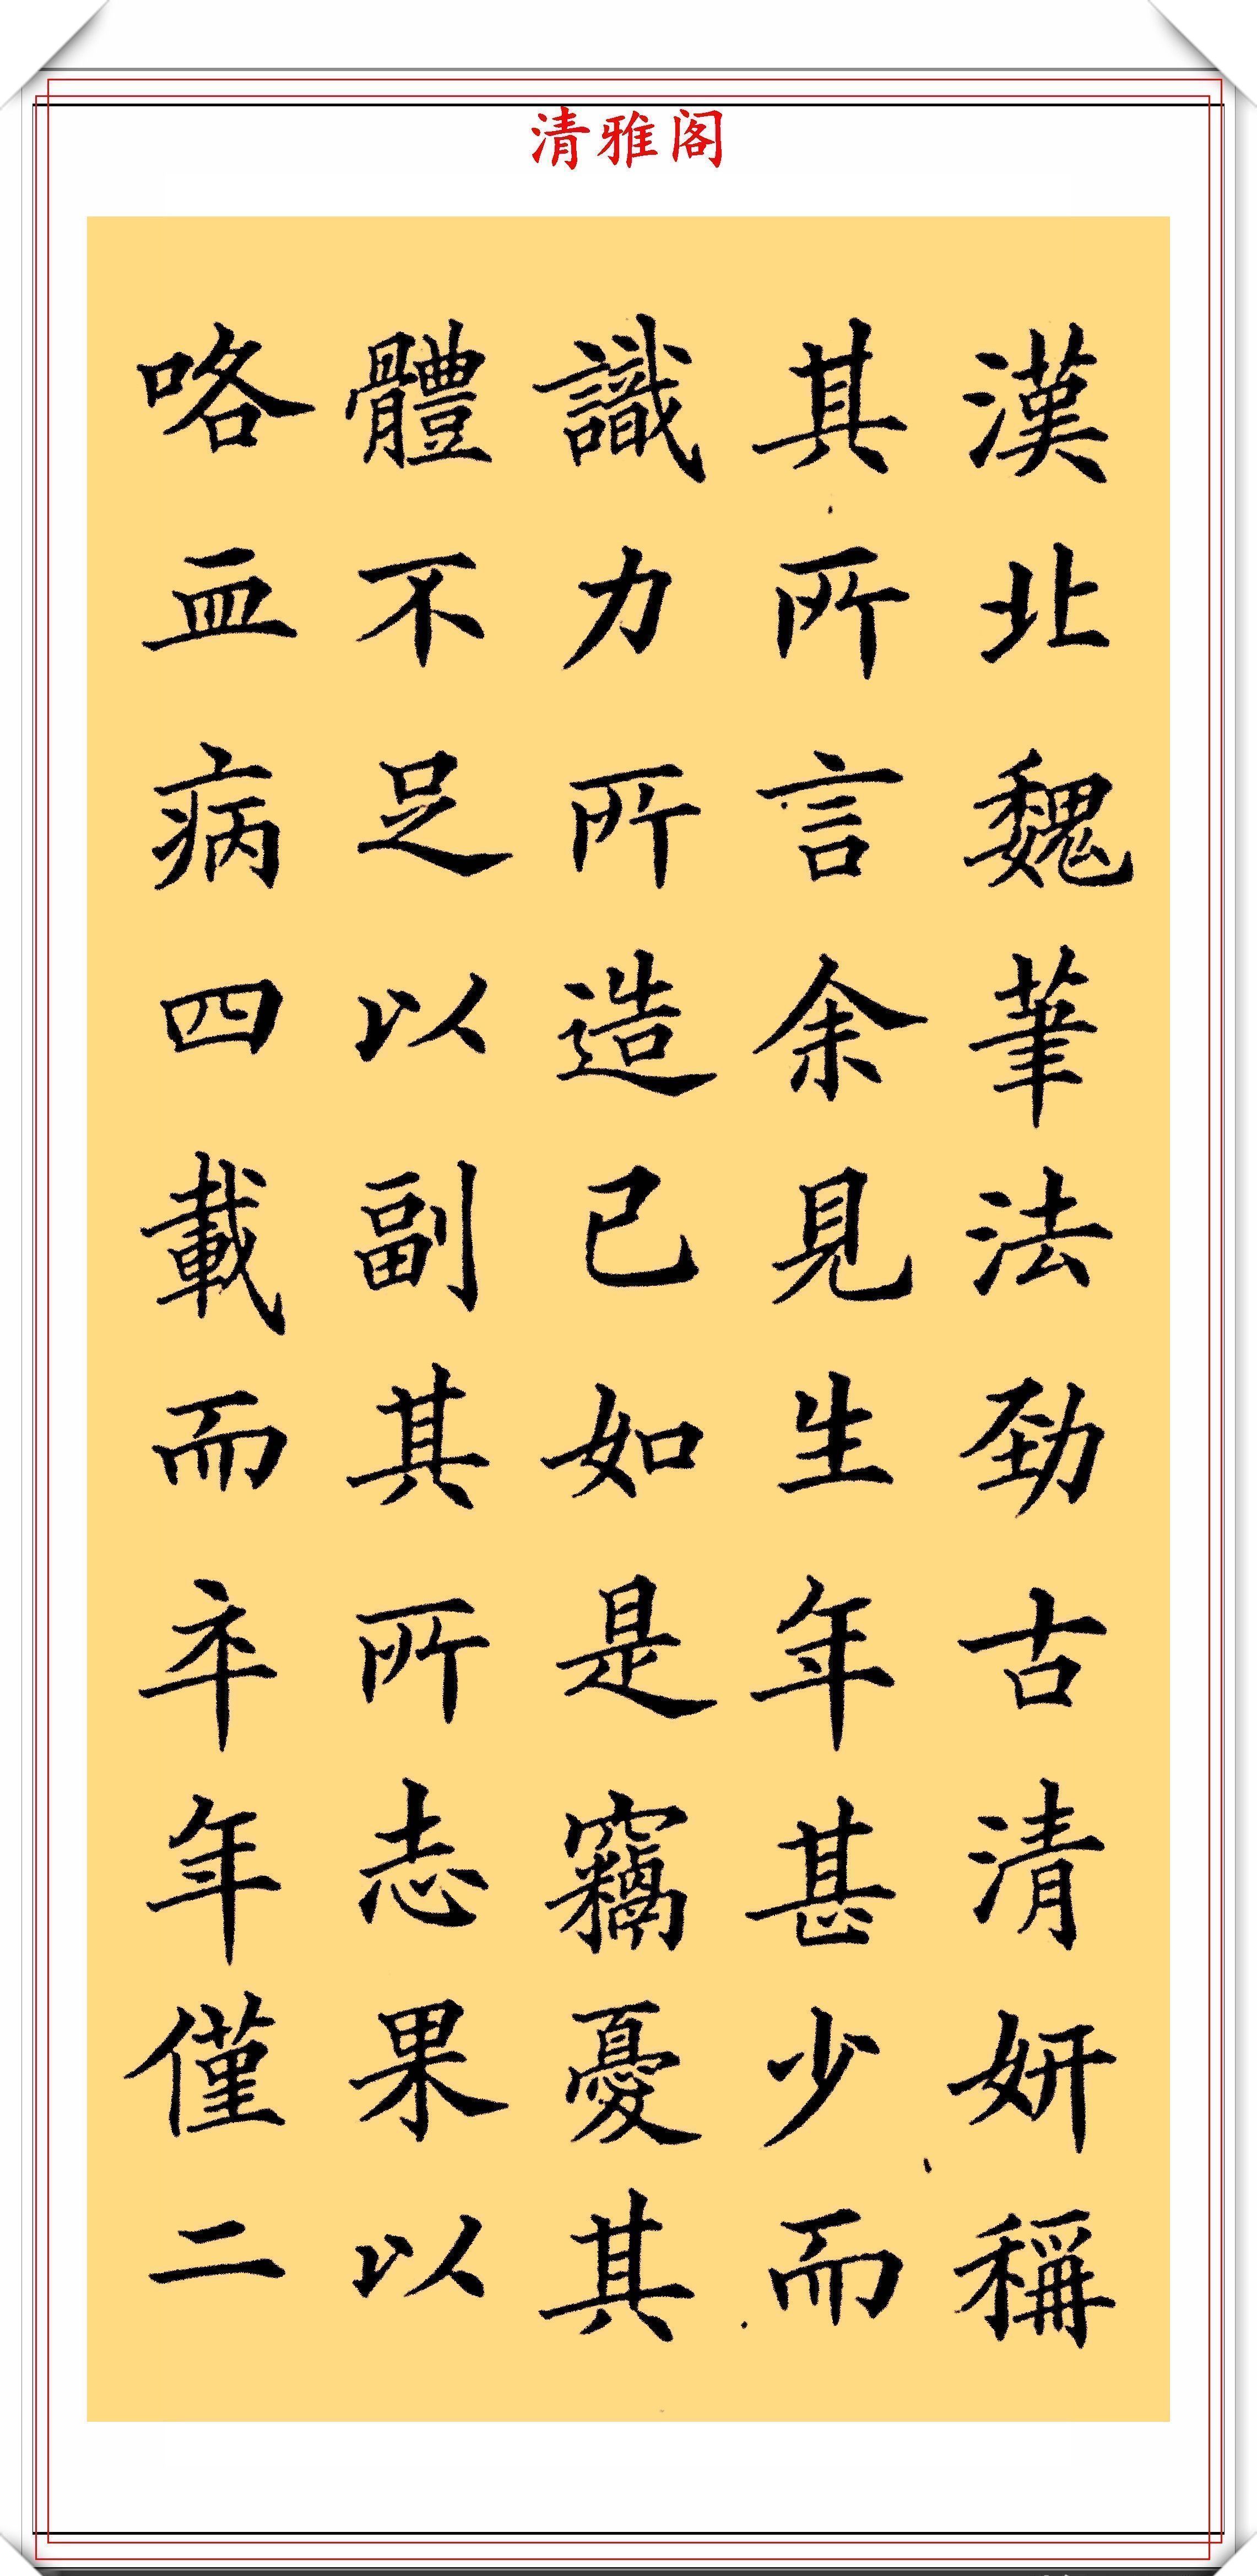 清雅阁
漢北魏筆法勁古清妍稱
其所言余見生年甚少而
識力所造已如是竊憂其
體不足以副其所志果以
咯血病四載而卒年僅二